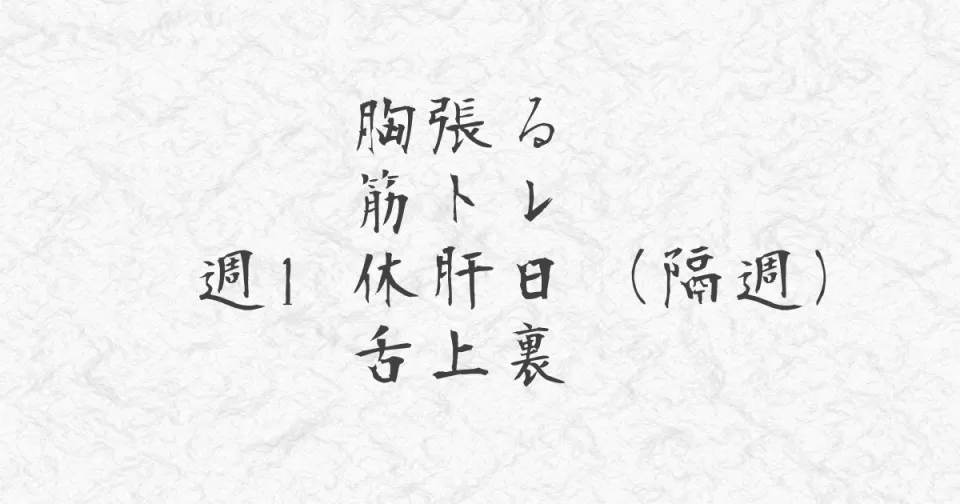 胸張る
筋トレ
週1 休肝日 (隔週)
舌上裏